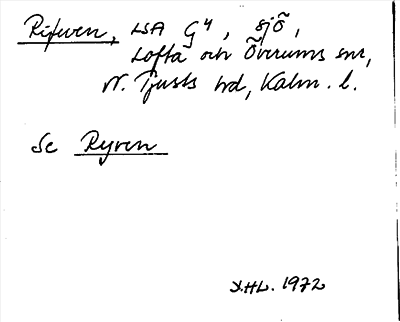 Rifwen, LSA G4, sjö,
Lofta och Överums snr,
N. Tjusts hd, Kalm. l.
Se Ryven
HL. 1972